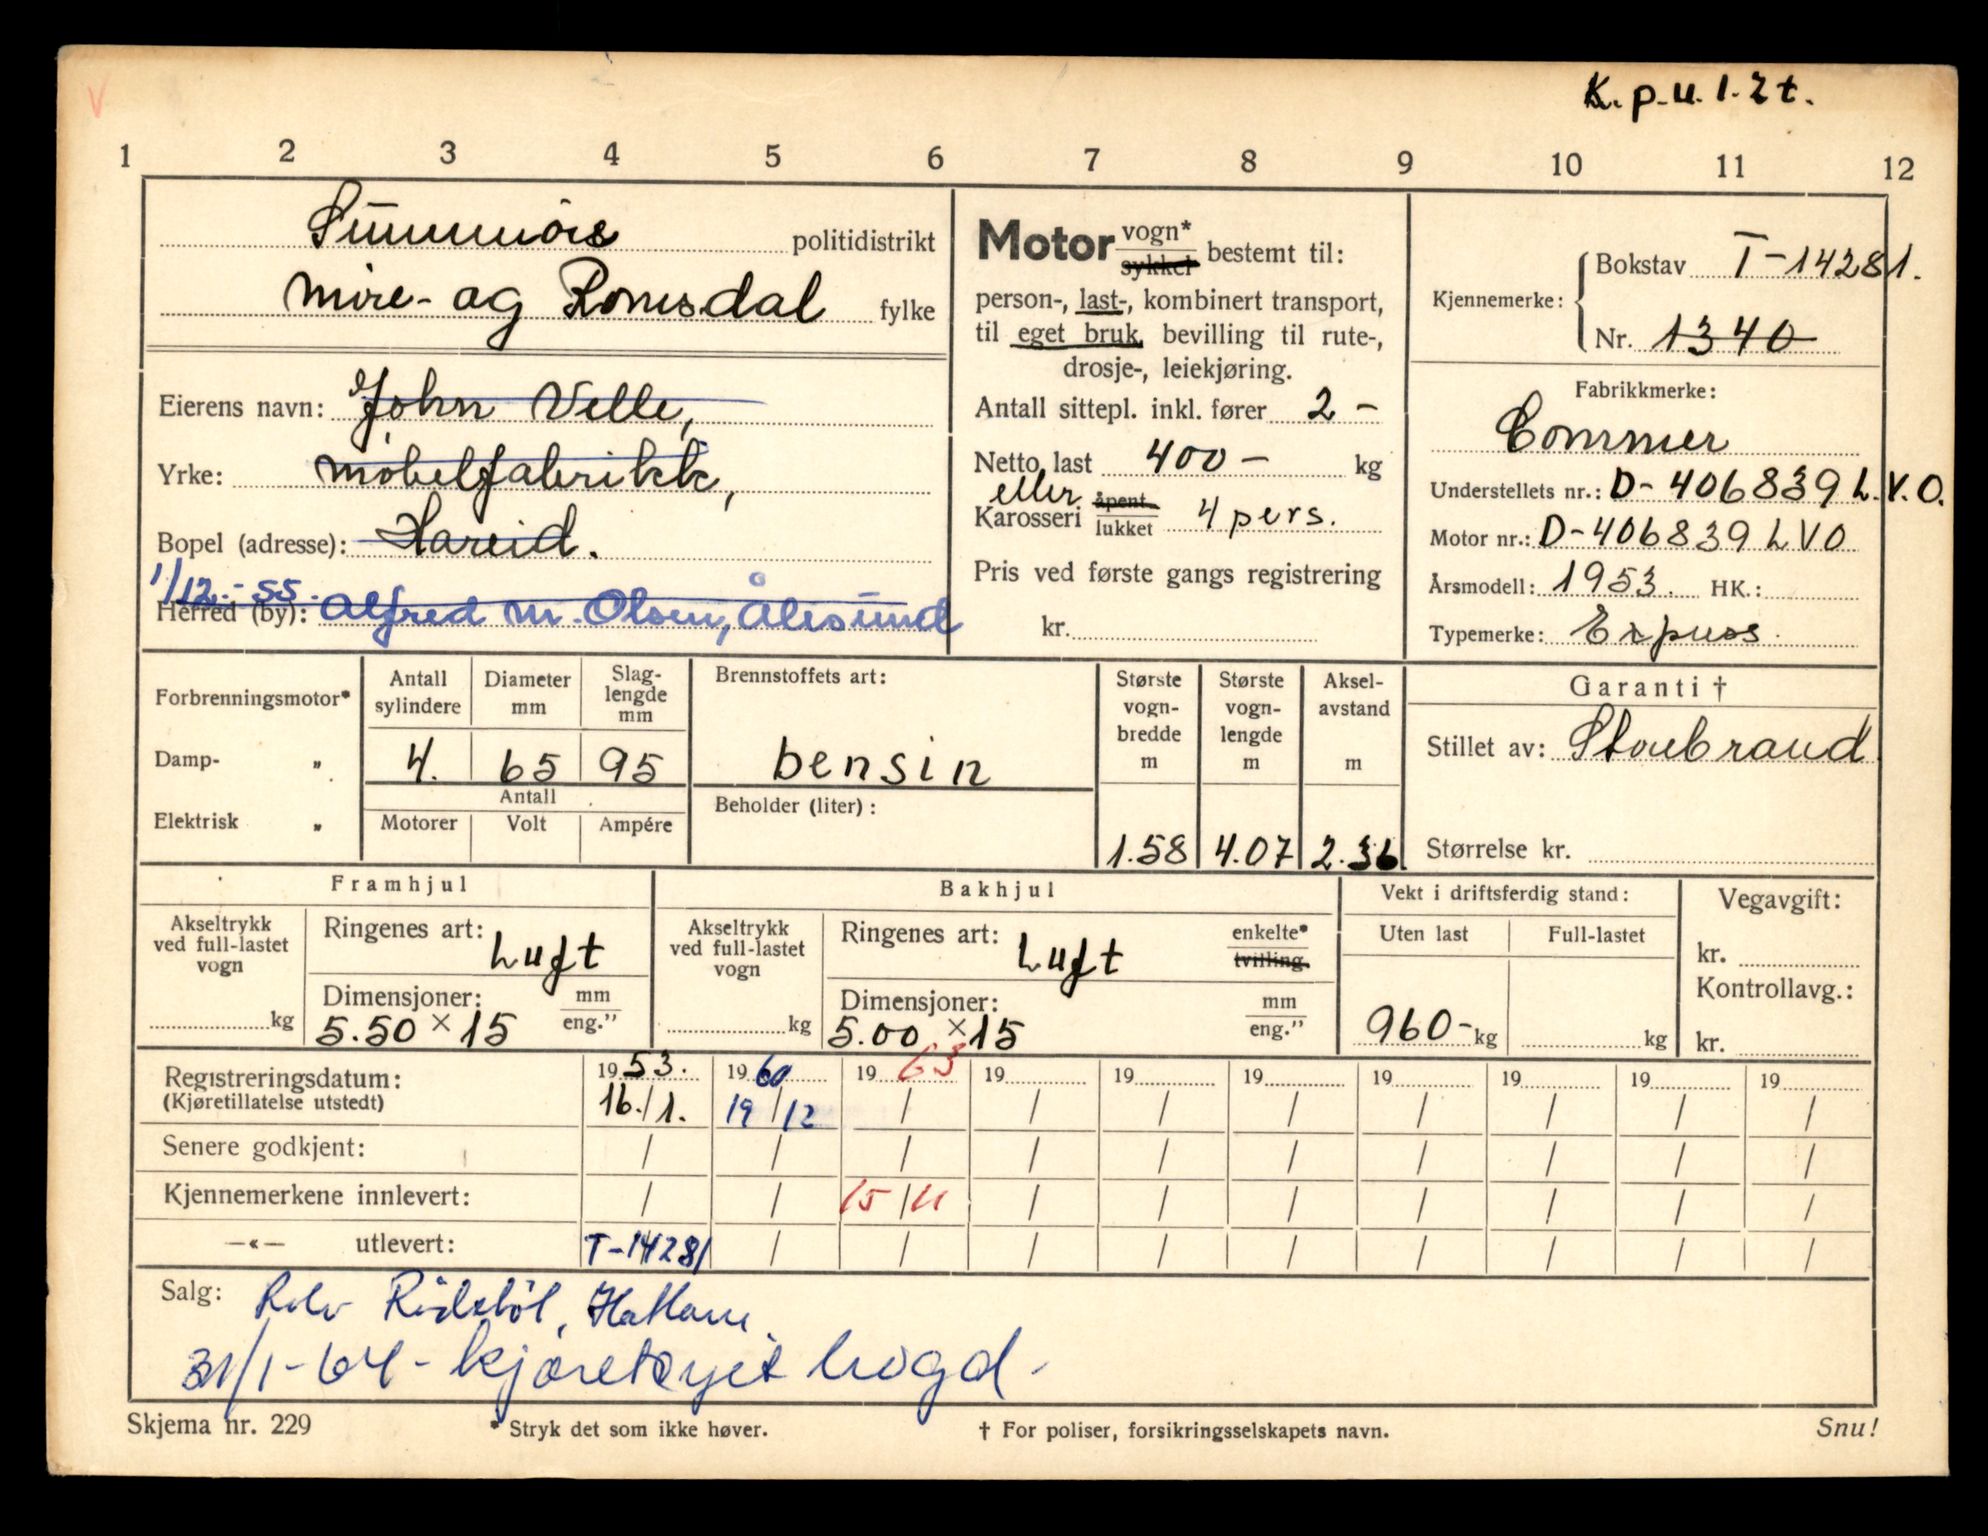 V
K.p.u.1.2t.
1 2 3 4 5 6 7 8 9 10 11 12
Sunnmöre politidistrikt
Möre- og Romsdal fylke
Eierens navn: John Velle,
Yrke: Möbelfabrikk,
Bopel (adresse): Hareid.
1/12.-55.
Herred (by): Alfred M. Olsen, Ålesund
Motor vogn* sykkel bestemt til:
person-, last-, kombinert transport,
til eget bruk, bevilling til rute-,
drosje-, leiekjøring.
Antall sittepl. inkl. fører 2 -
Netto last 400 - kg
eller
Karosseri åpent lukket 4 pers.
Pris ved første gangs registrering
kr.
Kjennemerke: Bokstav T-14281.
Nr. 1340
Fabrikkmerke:
Commer
Understellets nr.: D-406839 L.V.O.
Motor nr.: D-406839 LVO
Årsmodell: 1953. HK.:
Typemerke: Express.
Forbrenningsmotor*
Damp- "
Elektrisk "
Antall sylindere
Diameter mm
Slaglengde mm
4. 65 95
Antall
Motorer Volt Ampére
Brennstoffets art:
bensin
Beholder (liter):
Største vognbredde m
Største vognlengde m
Akselavstand m
1.58 4.07 2.36
Garanti †
Stillet av: Storebrand
Størrelse kr.
Framhjul
Akseltrykk
ved full-lastet
vogn
kg
Ringenes art: Luft
Dimensjoner: mm
5.50 × 15 eng."
Bakhjul
Akseltrykk
ved full-lastet
vogn
kg
Ringenes art: Luft enkelte* tvilling.
Dimensjoner: mm
5.00 × 15 eng."
Vekt i driftsferdig stand:
Uten last Full-lastet
960- kg kg
Vegavgift:
kr.
Kontrollavg.:
kr.
Registreringsdatum: 1953. 1960 1963 19 19 19 19 19 19 19
(Kjøretillatelse utstedt) 16./1. 19/12 / / / / / / / /
Senere godkjent: / / / / / / / / / /
Kjennemerkene innlevert: / / 15/11 / / / / / / /
—«— utlevert: T-14281 / / / / / / / / /
Salg:
31/1-64- kjøretøyet hogd-
Skjema nr. 229 * Stryk det som ikke høver. † For poliser, forsikringsselskapets navn. Snu!